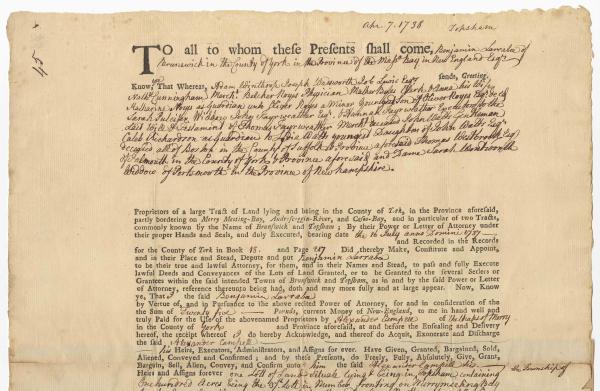 45
Apr. 7. 1738 Topsham
TO all to whom these Presents shall come, Benjamin Larraba of
Brunswick in the County of York in the Province of the Massa Bay in New England Esqr
sends, Greeting.
Know ye, That Whereas, Adam Winthrop Joseph Wadsworth Job Lewis Esqrs
Nathl Cunningham Mercht Belcher Noyes Physician & Anna his Wife
Katharine Noyes as Guardian unto Oliver Noyes a Minor Youngest Son of Oliver Noyes Esqr
Sarah Widow John Fayrweather Esqr & Hannah Fayrweather Executors to the
last Will & Testament of Thomas Fayrweather Mercht deceased John Watts Gentleman
Caleb Richardson as Guardian to Lydia Watts youngest Daughter of John Watts Esqr
deceased all of Boston in the County of Suffolk & Province aforesaid Thomas Westbrook Esqr
of Falmouth in the County of York & Province aforesaid and Dame Sarah Wentworth
Widdow of Portsmouth in the Province of New Hampshire.
Proprietors of a large Tract of Land lying and being in the County of York, in the Province aforesaid,
partly bordering on Merry Meeting-Bay, Andrescoggin-River, and Casco-Bay, and in particular of two Tracts,
commonly known by the Name of Brunswick and Topsham; By their Power or Letter of Attorney under
their proper Hands and Seals, and duly Executed, bearing date the 16 July Anno Domini 1737
and Recorded in the Records
for the County of York in Book 18. and Page 267 Did thereby Make, Constitute and Appoint,
and in their Place and Stead, Depute and put Benjamin Larraba
to be their true and lawful Attorney, for them, and in their Names and Stead, to pass and fully Execute
lawful Deeds and Conveyances of the Lots of Land Granted, or to be Granted to the several Setlers or
Grantees within the said intended Towns of Brunswick and Topsham, as in and by the said Power or Letter
of Attorney, reference thereunto being had, doth and may more fully and at large appear. Now, Know
ye, That I the said Benjamin Larraba
by Vertue of, and in Pursuance to the above recited Power of Attorney, for and in consideration of the
Sum of Twenty five Pounds, current Money of New-England, to me in hand well and
truly Paid to the Use of the abovenamed Proprietors by Alexander Campbell of Merry
in the County of York and Province aforesaid, at and before the Ensealing and Delivery
hereof, the receipt whereof I do hereby Acknowledge, and thereof do Acquit, Exonerate and Discharge
the said Alexander Campbell
his Heirs, Executors, Administrators, and Assigns for ever. Have Given, Granted, Bargained, Sold,
Aliened, Conveyed and Confirmed; and by these Presents, do Freely, Fully, Absolutely, Give, Grant,
Bargain, Sell, Alien, Convey, and Confirm unto him the said Alexander Campbell his
Heirs and Assigns forever one Lott of Land Situate lying & being in Topsham containing the Township of
One hundred Acres being the Lott in Number, fronting on Merrymeeting Bay